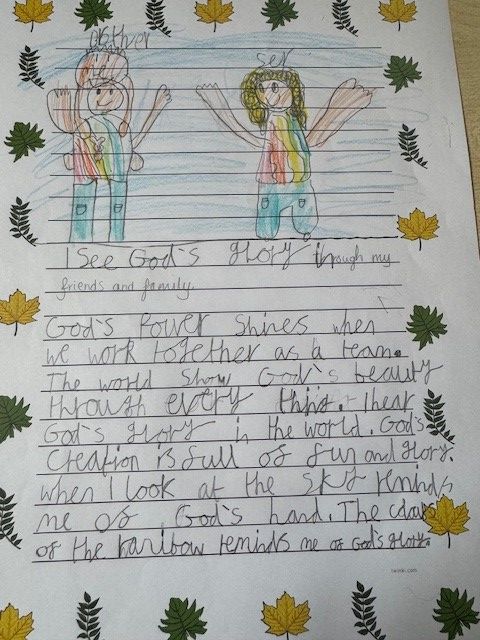 ser
I See God's glory through my
friends and family.
God's Power Shines when
we work together as a team.
The world Show God's beauty
through every this. I hear
God's glory in the world. God's
Creation is full of fun and glory.
when I look at the sky reminds
me of God's hand. The colaps
of the rainbow reminds me of God's glory.
twinkl.com